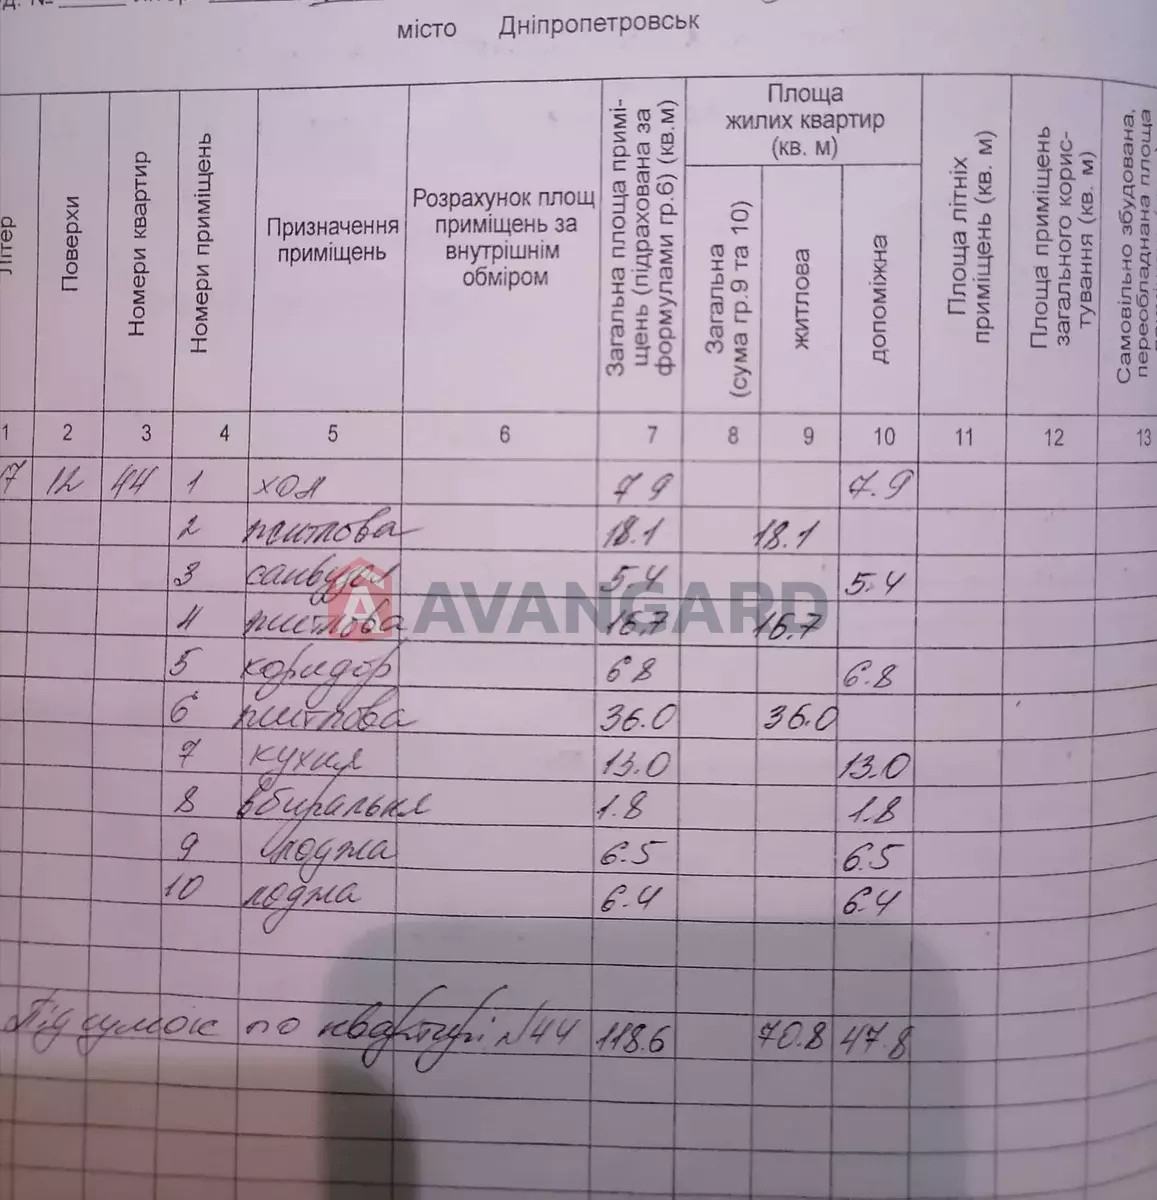 місто Дніпропетровськ
Літер
Поверхи
Номери квартир
Номери приміщень
Призначення приміщень
Розрахунок площ приміщень за внутрішнім обміром
Загальна площа приміщень (підрахована за формулами гр.6) (кв.м)
Площа жилих квартир (кв. м)
Загальна (сума гр.9 та 10)
житлова
допоміжна
Площа літніх приміщень (кв. м)
Площа приміщень загального користування (кв. м)
Самовільно збудована, переобладнана площа
1 2 3 4 5 6 7 8 9 10 11 12 13
17 12 44 1 хол 7 9 7.9
2 житлова 18.1 18.1
3 санвузол 5.4 5.4
4 житлова 16.7 16.7
5 коридор 6 8 6.8
6 житлова 36.0 36.0
7 кухня 13.0 13.0
8 вбиральня 1.8 1.8
9 лоджа 6.5 6.5
10 лоджа 6.4 6.4
Підсумок по квартирі №44 118.6 70.8 47.8
AVANGARD